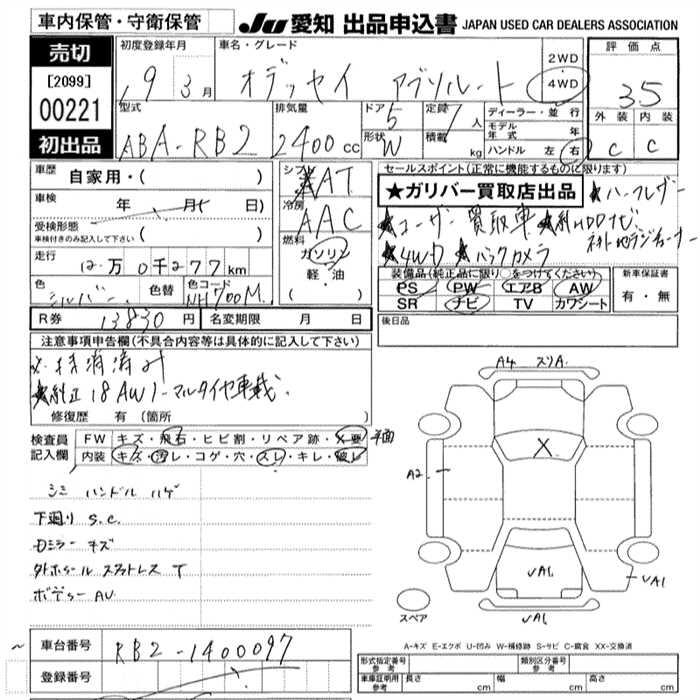 車内保管・守衛保管
JU 愛知 出品申込書 JAPAN USED CAR DEALERS ASSOCIATION
売切
[2099]
00221
初出品
初度登録年月
19 3月
車名・グレード
オデッセイ アブソルート
2WD
4WD
評価点
3.5
外装 内装
C C
型式
ABA-RB2
排気量
2400cc
ドア 5
形状 W
定員 7人
積載 kg
ディーラー・並行
モデル年式 年
ハンドル 左 右
車歴 自家用・( )
車検 年 月( 日)
受検形態
車検付きのみ記入して下さい ( )
走行 12万0千277km
色 シルバー 色替 色コード NH700M
R券 13830円 名変期限 月 日
シフト AT
冷房 AAC
燃料
ガソリン
軽・油
・( )
セールスポイント(正常に機能するものに限ります)
★ガリバー買取店出品 ★ハーフレザー
★ユーザー買取車 ★純HDDナビ
★4WD ★バックカメラ
装備品(純正品に限り○をつけてください)
PS PW エアB AW
SR ナビ TV カワシート
新車保証書
有・無
後日品
注意事項申告欄(不具合内容等は具体的に記入して下さい)
★純正18AWノーマルタイヤ車載
修復歴 有(箇所 )
検査員記入欄
FW キズ・飛石・ヒビ割・リペア跡・X要
内装 キズ・汚レ・コゲ・穴・スレ・キレ・破レ
シミ ハンドル ハゲ
下廻り S.C.
Dミラー キズ
ボデー AU
A4 スリA
X
A2
VA1
VA1
VA1
スペア
A-キズ E-エクボ U-凹み W-補修跡 S-サビ C-腐食 XX-交換済
車台番号 RB2-1400097
登録番号
形式指定番号 参考
類別区分番号 参考
車庫証明用 参考 長さ cm 幅 cm 高さ cm